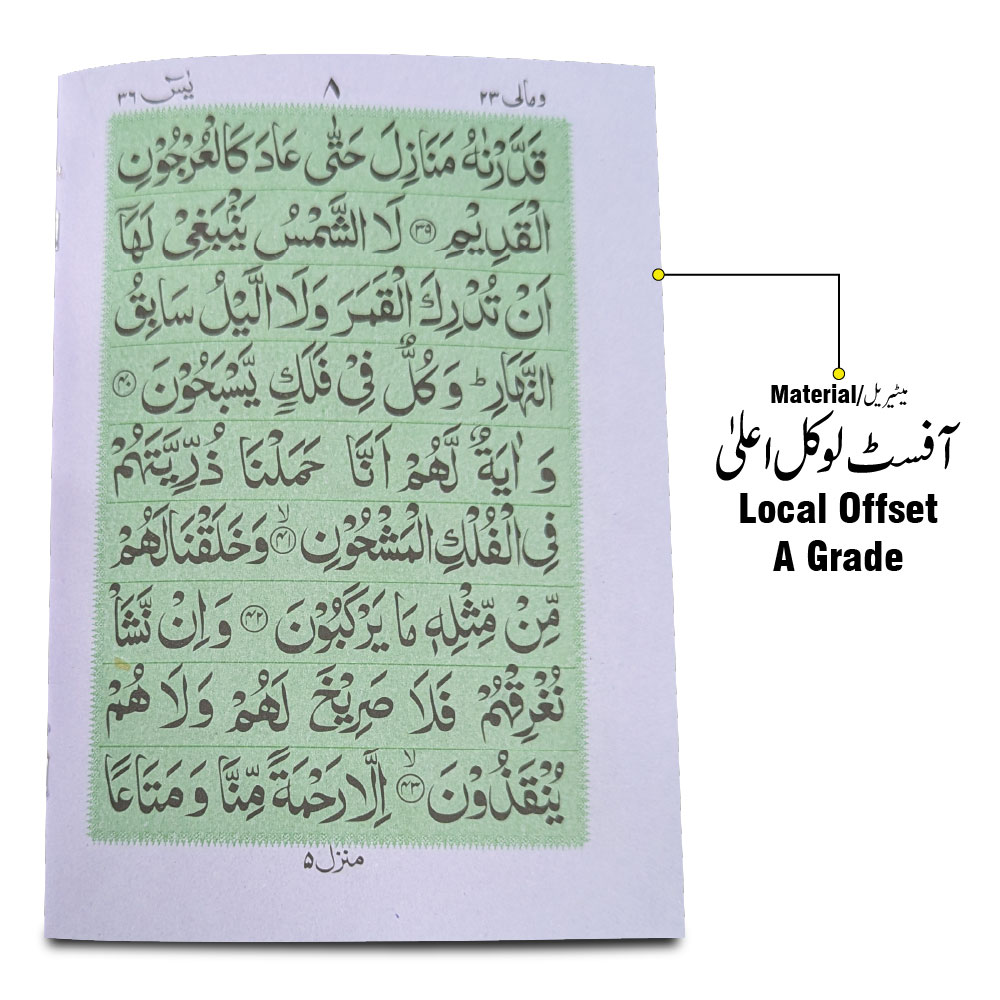 یٰسٓ ۳۶ ۸ ومالی ۲۳
قَدَّرْنٰهُ مَنَازِلَ حَتّٰی عَادَ کَالْعُرْجُوْنِ
الْقَدِیْمِ ﴿۳۹﴾ لَا الشَّمْسُ یَنْۢبَغِیْ لَهَاۤ
اَنْ تُدْرِكَ الْقَمَرَ وَلَا الَّیْلُ سَابِقُ
النَّهَارِ ؕ وَ كُلٌّ فِیْ فَلَكٍ یَّسْبَحُوْنَ ﴿۴۰﴾
وَ اٰیَةٌ لَّهُمْ اَنَّا حَمَلْنَا ذُرِّیَّتَهُمْ
فِی الْفُلْكِ الْمَشْحُوْنِ ﴿۴۱﴾ۙ وَخَلَقْنَا لَهُمْ
مِّنْ مِّثْلِهٖ مَا یَرْكَبُوْنَ ﴿۴۲﴾ وَ اِنْ نَّشَاْ
نُغْرِقْهُمْ فَلَا صَرِیْخَ لَهُمْ وَلَا هُمْ
یُنْقَذُوْنَ ﴿۴۳﴾ۙ اِلَّا رَحْمَةً مِّنَّا وَ مَتَاعًا
منزل ۵
Material/میٹیریل
آفسٹ لوکل اعلیٰ
Local Offset
A Grade